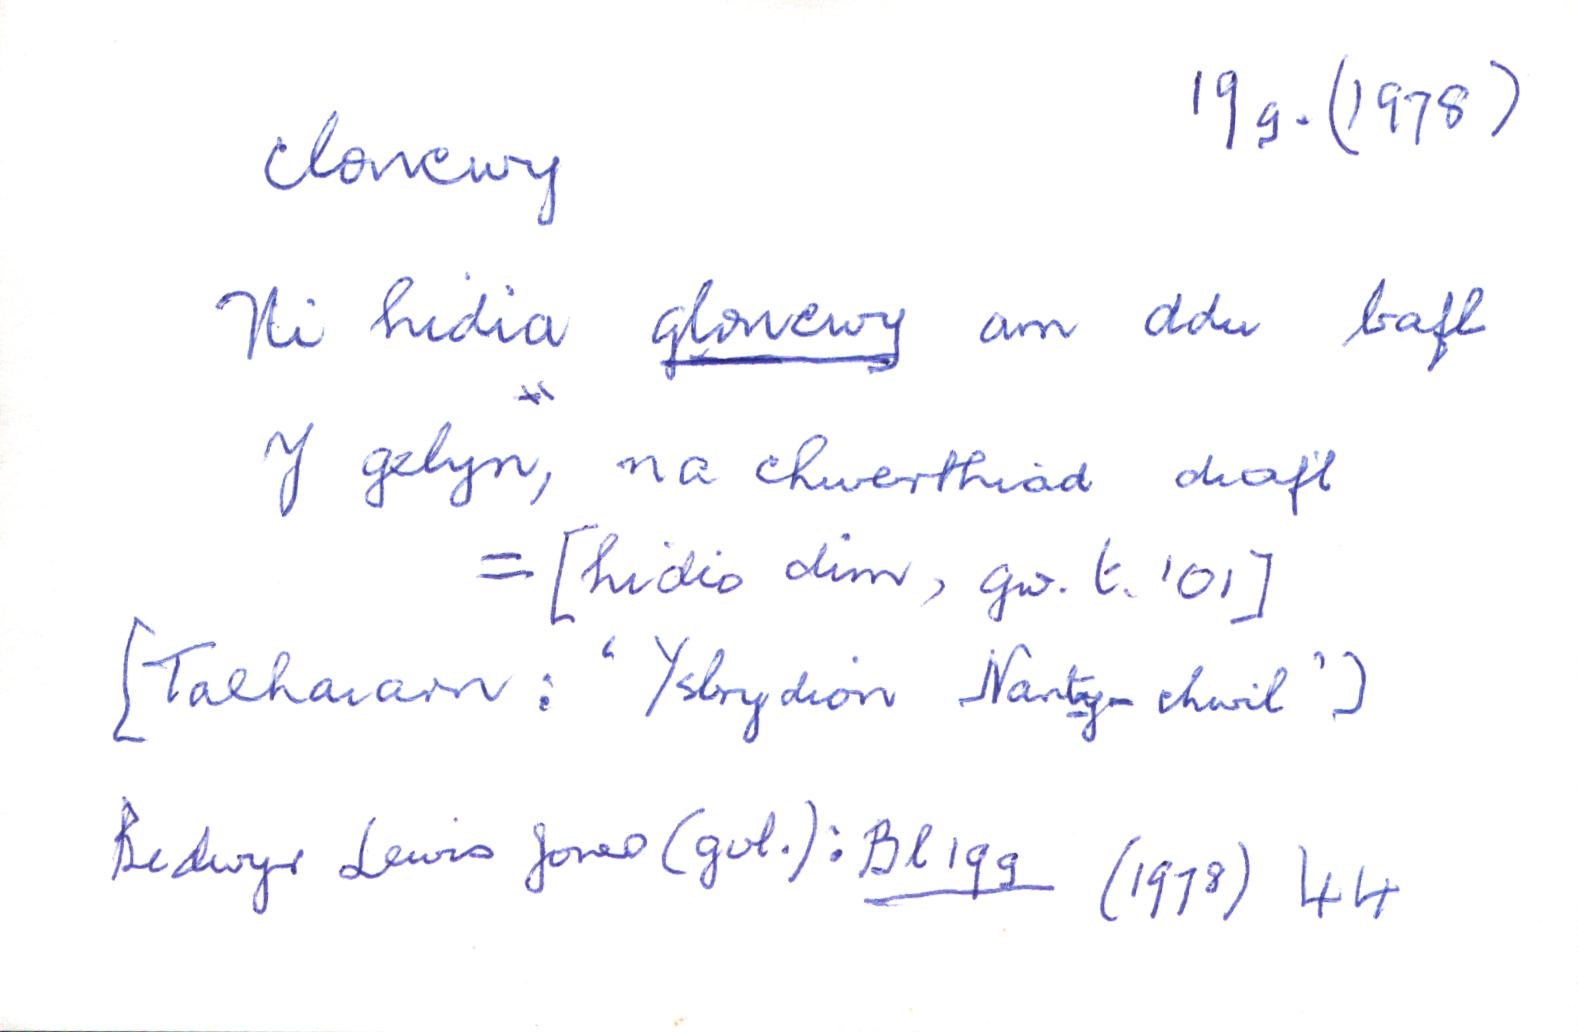 19g. (1978)
cloncwy
Ni hidia gloncwy am ddu bafl
Y gelyn, na chwerthiad diafl
= [hidio dim, gw. t. 101]
[Talhaiarn: "Ysbrydion Nant-y-chwil"]
Bedwyr Lewis Jones (gol.): Bl 19g (1978) 44